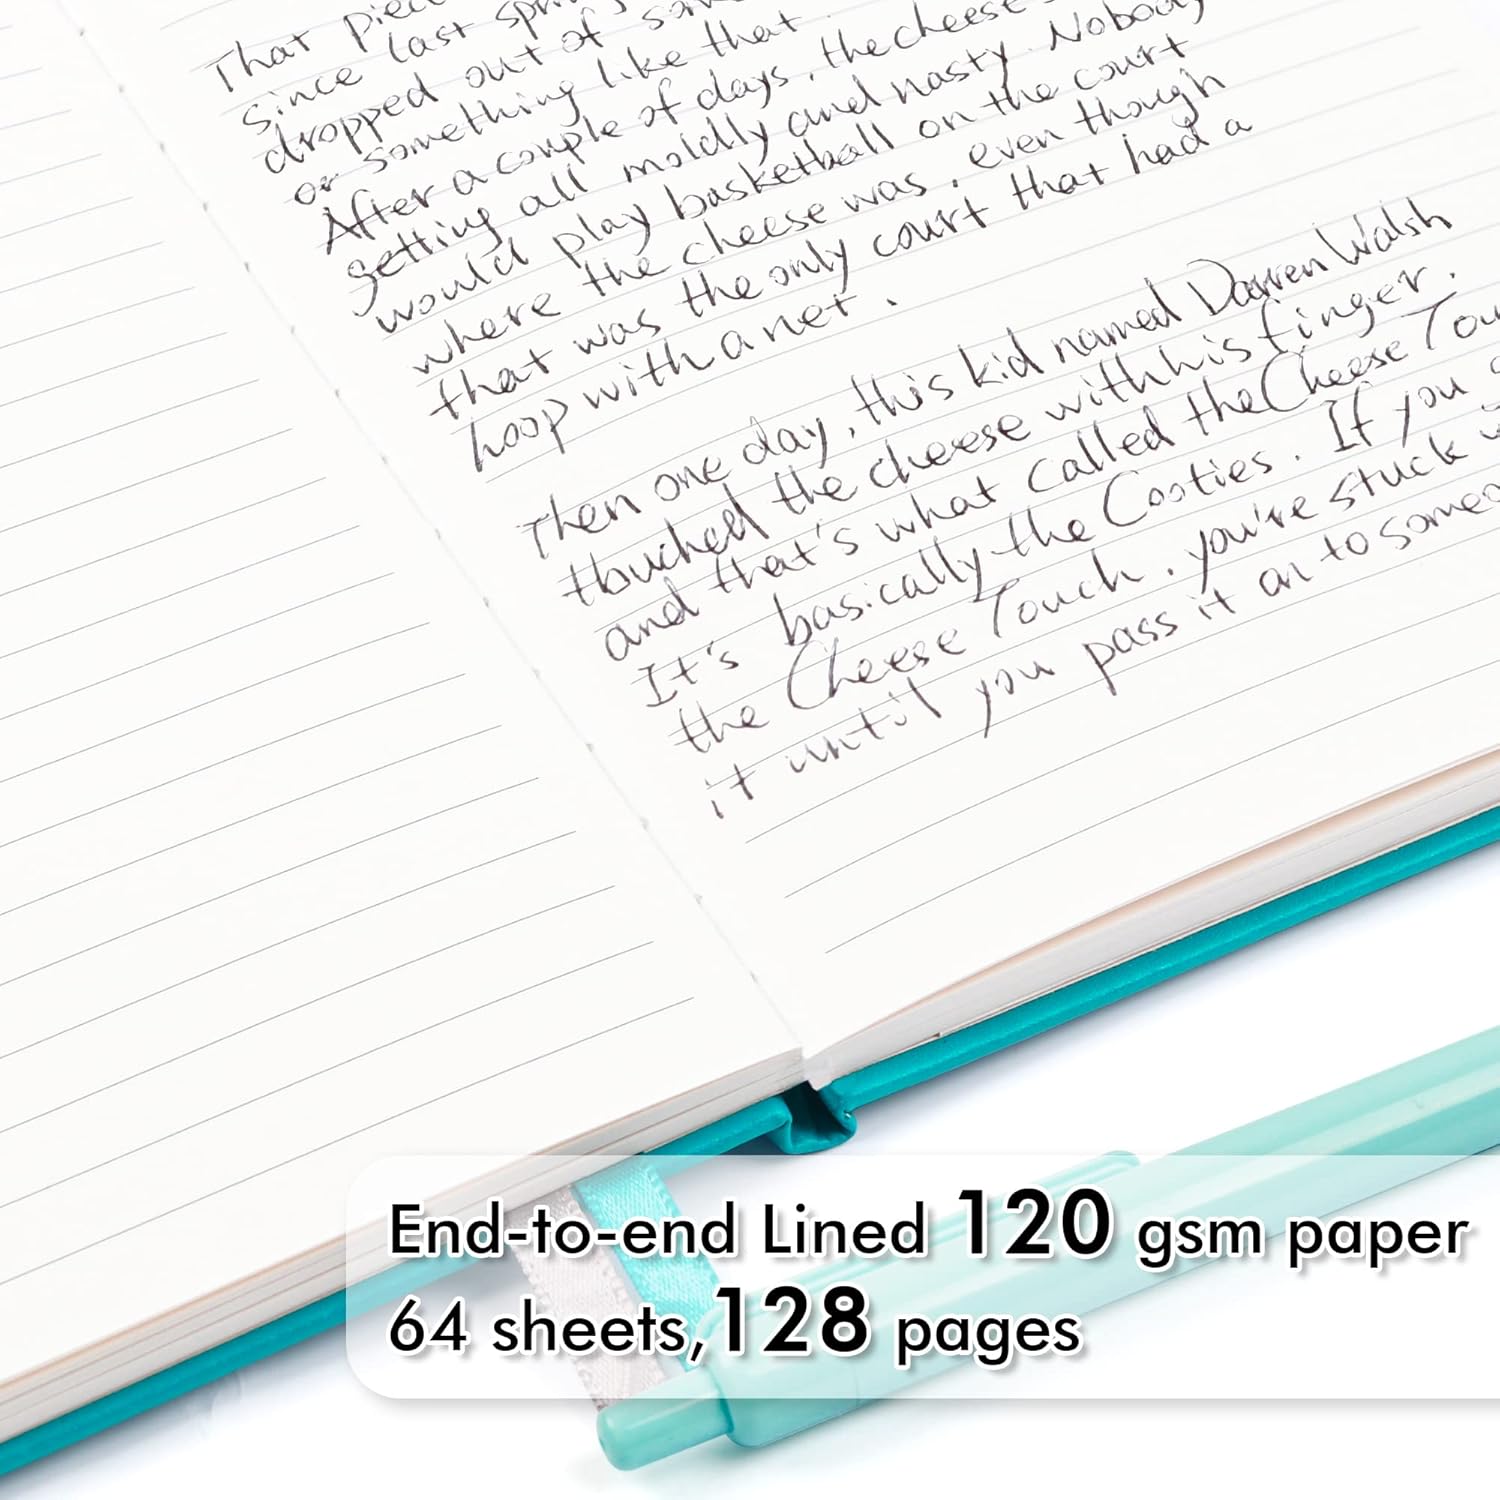 That piec
since last spri
dropped out of
or something like that
After a couple of days, the cheese
getting all moldly and nasty. Nobody
would play basketball on the court
where the cheese was, even though
that was the only court that had a
hoop with a net.
Then one day, this kid named Darren Walsh
thouched the cheese with his finger.
and that's what called the Cheese Tou
It's basically the Cooties. If you
the Cheese Touch, you're stuck
it until you pass it on to someo
End-to-end Lined 120 gsm paper
64 sheets,128 pages